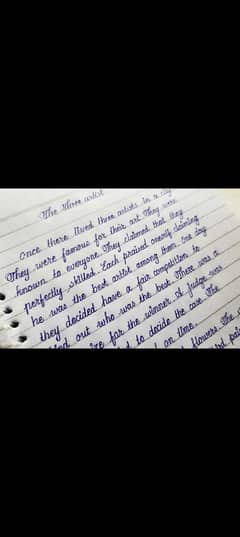 The three artist
Once there lived three artists in a city
They were famous for their art They were
known to everyone. They claimed that they
perfectly skilled. Each praised oneself claiming
he was the best artist among them. One day
they decided have a fair competition to
find out who was the best. There was a
for the winner. A judge was
to decide the case. The
on time.
flowers. The